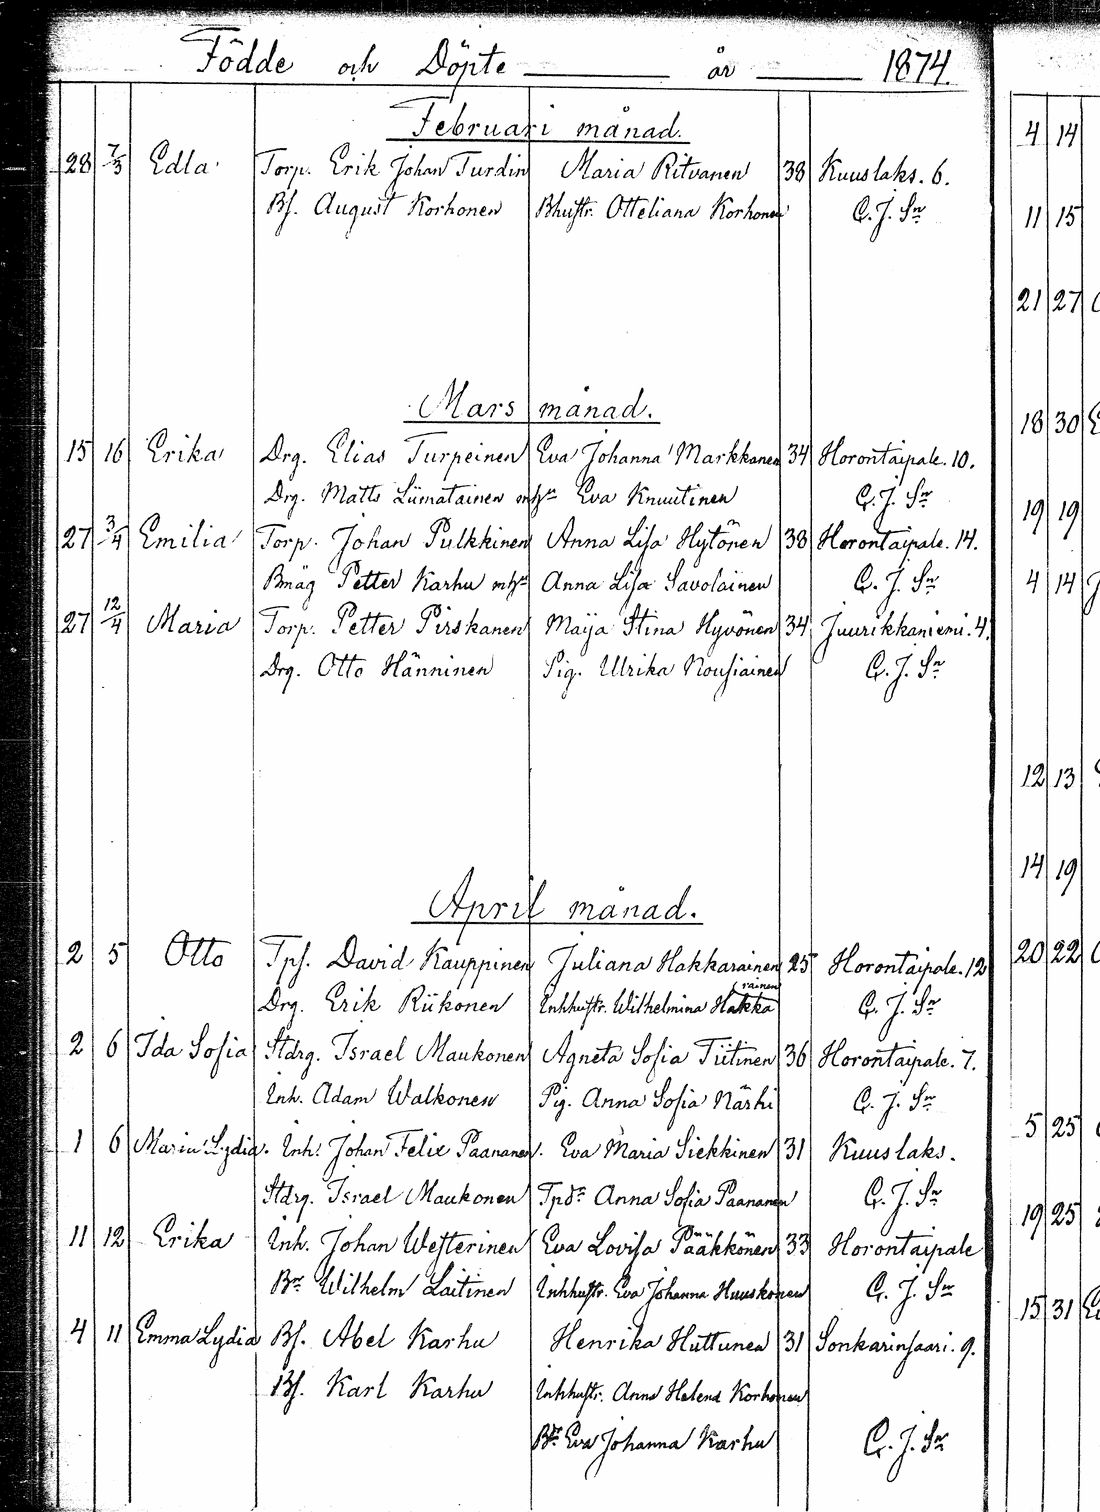 Födde och Döpte år 1874.
Februari månad.
28 7/3 Edla Torp. Erik Johan Turdin Maria Ritvanen 38 Kuuslaks. 6.
Bf. August Korhonen Bhustr. Otteliana Korhonen C. J. Sn
Mars månad.
15 16 Erika Drg. Elias Turpeinen Eva Johanna Markkanen 34 Horontaipale. 10.
Drg. Matts Liimatainen mhu Eva Knuutinen C. J. Sn
27 3/4 Emilia Torp. Johan Pulkkinen Anna Lisa Hytönen 38 Horontaipale. 14.
Bmåg Petter Karhu mhu Anna Lisa Savolainen C. J. Sn
27 12/4 Maria Torp. Petter Pirskanen Maija Stina Hyvönen 34 Juurikkaniemi. 4.
Drg. Otto Hänninen Pig. Ulrika Nousiainen C. J. Sn
April månad.
2 5 Otto Tps. David Kauppinen Juliana Hakkarainen 25 Horontaipale. 12
Drg. Erik Riikonen Inhhustr. Wilhelmina Hakkarainen C. J. Sn
2 6 Ida Sofia Stdrg. Israel Maukonen Agneta Sofia Tiitinen 36 Horontaipale. 7.
Inh. Adam Walkonen Pig. Anna Sofia Närhi C. J. Sn
1 6 Maria Lydia. Inh. Johan Felix Paananen. Eva Maria Siekkinen 31 Kuuslaks.
Stdrg. Israel Maukonen Tpdr Anna Sofia Paananen C. J. Sn
11 12 Erika Inh. Johan Westerinen Eva Lovisa Pääkkönen 33 Horontaipale
Br Wilhelm Laitinen Inhhustr. Eva Johanna Huuskonen C. J. Sn
4 11 Emma Lydia Bf. Abel Karhu Henrika Huttunen 31 Sonkarinsaari. 9.
Bf. Karl Karhu Inhhustr. Anna Helena Korhonen
Br Eva Johanna Karhu C. J. Sn
4 14
11 15
21 27
18 30
19 19
4 14
12 13
14 19
20 22
5 25
19 25
15 31